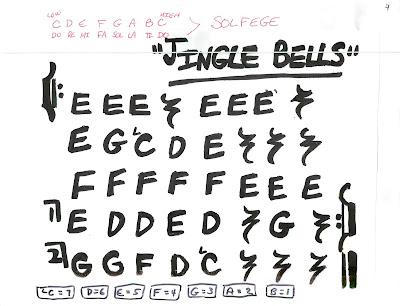 LOW HIGH
C D E F G A B C > SOLFEGE
DO RE MI FA SOL LA TI DO
4
"JINGLE BELLS"
E E E 𝄽 E E E' 𝄽
E G 'C D E 𝄽 𝄽 𝄽
F F F F F E E E
1) E D D E D 𝄽 G 𝄽
2) G G F D 'C 𝄽 𝄽 𝄽
LC=7 D=6 E=5 F=4 G=3 A=2 B=1